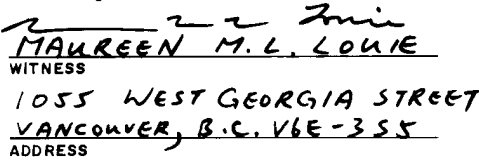 MAUREEN M.L. LOUIE
WITNESS
1055 WEST GEORGIA STREET
VANCOUVER, B.C. V6E-3S5
ADDRESS